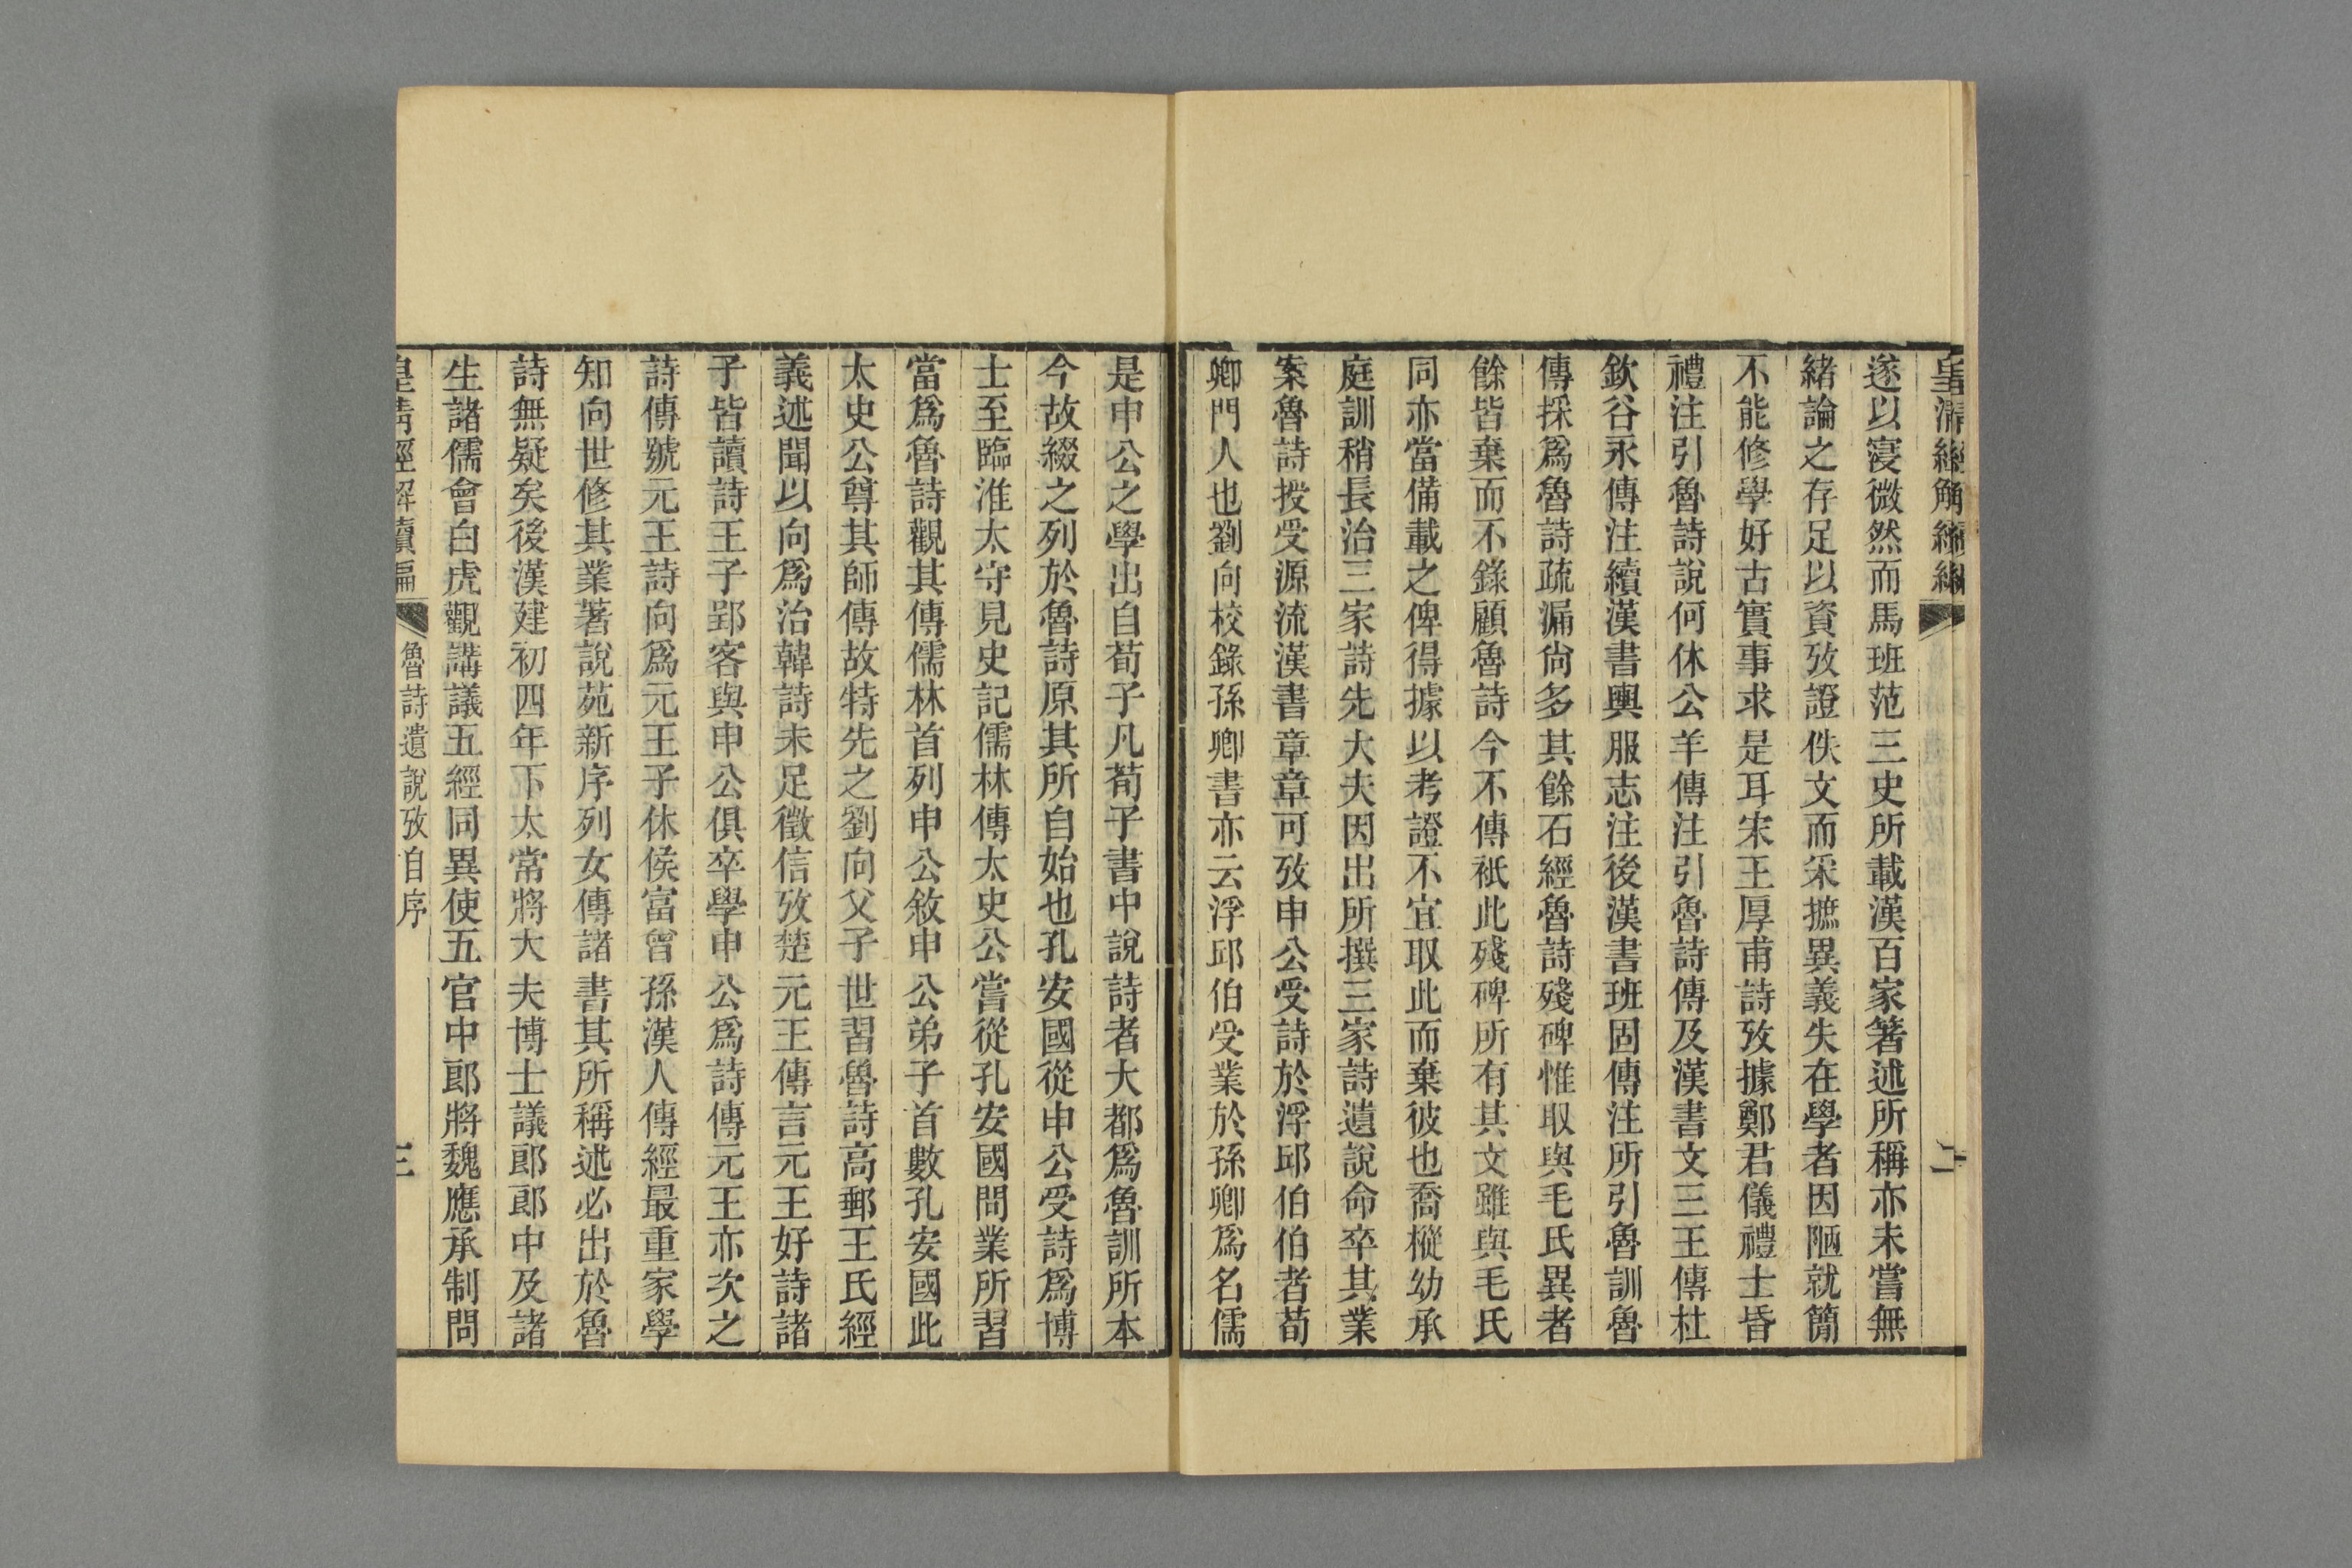 皇清經解續編
二
遂以寖微然而馬班范三史所載漢百家箸述所稱亦未嘗無
緒論之存足以資攷證佚文而采摭異義失在學者因陋就簡
不能修學好古實事求是耳宋王厚甫詩攷據鄭君儀禮士昏
禮注引魯詩說何休公羊傳注引魯詩傳及漢書文三王傳杜
欽谷永傳注續漢書輿服志注後漢書班固傳注所引魯訓魯
傳採爲魯詩疏漏尙多其餘石經魯詩殘碑惟取與毛氏異者
餘皆棄而不錄顧魯詩今不傳祇此殘碑所有其文雖與毛氏
同亦當備載之俾得據以考證不宜取此而棄彼也喬樅幼承
庭訓稍長治三家詩先大夫因出所撰三家詩遺說命卒其業
案魯詩授受源流漢書章章可攷申公受詩於浮邱伯伯者荀
卿門人也劉向校錄孫卿書亦云浮邱伯受業於孫卿爲名儒
是申公之學出自荀子凡荀子書中說詩者大都爲魯訓所本
今故綴之列於魯詩原其所自始也孔安國從申公受詩爲博
士至臨淮太守見史記儒林傳太史公嘗從孔安國問業所習
當爲魯詩觀其傳儒林首列申公敘申公弟子首數孔安國此
太史公尊其師傳故特先之劉向父子世習魯詩高郵王氏經
義述聞以向爲治韓詩未足徵信攷楚元王傳言元王好詩諸
子皆讀詩王子郢客與申公俱卒學申公爲詩傳元王亦次之
詩傳號元王詩向爲元王子休侯富曾孫漢人傳經最重家學
知向世修其業著說苑新序列女傳諸書其所稱述必出於魯
詩無疑矣後漢建初四年下太常將大夫博士議郎郎中及諸
生諸儒會白虎觀講議五經同異使五官中郎將魏應承制問
皇清經解續編
魯詩遺說攷自序
三